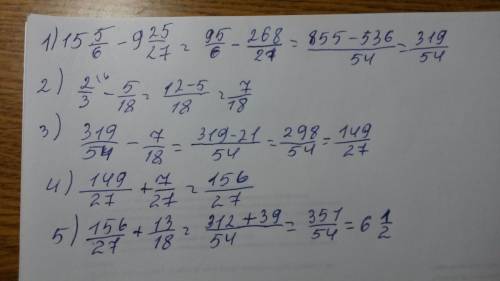 1) 15 5/6 - 9 25/27 = 95/6 - 268/27 = (855-536)/54 = 319/54
2) 2/3 - 5/18 = (12-5)/18 = 7/18
3) 319/54 - 7/18 = (319-21)/54 = 298/54 = 149/27
4) 149/27 + 7/27 = 156/27
5) 156/27 + 13/18 = (312+39)/54 = 351/54 = 6 1/2